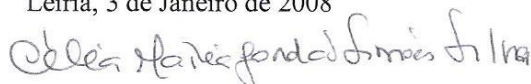 Leiria, 3 de Janeiro de 2008
Célia Maria Simões Silva